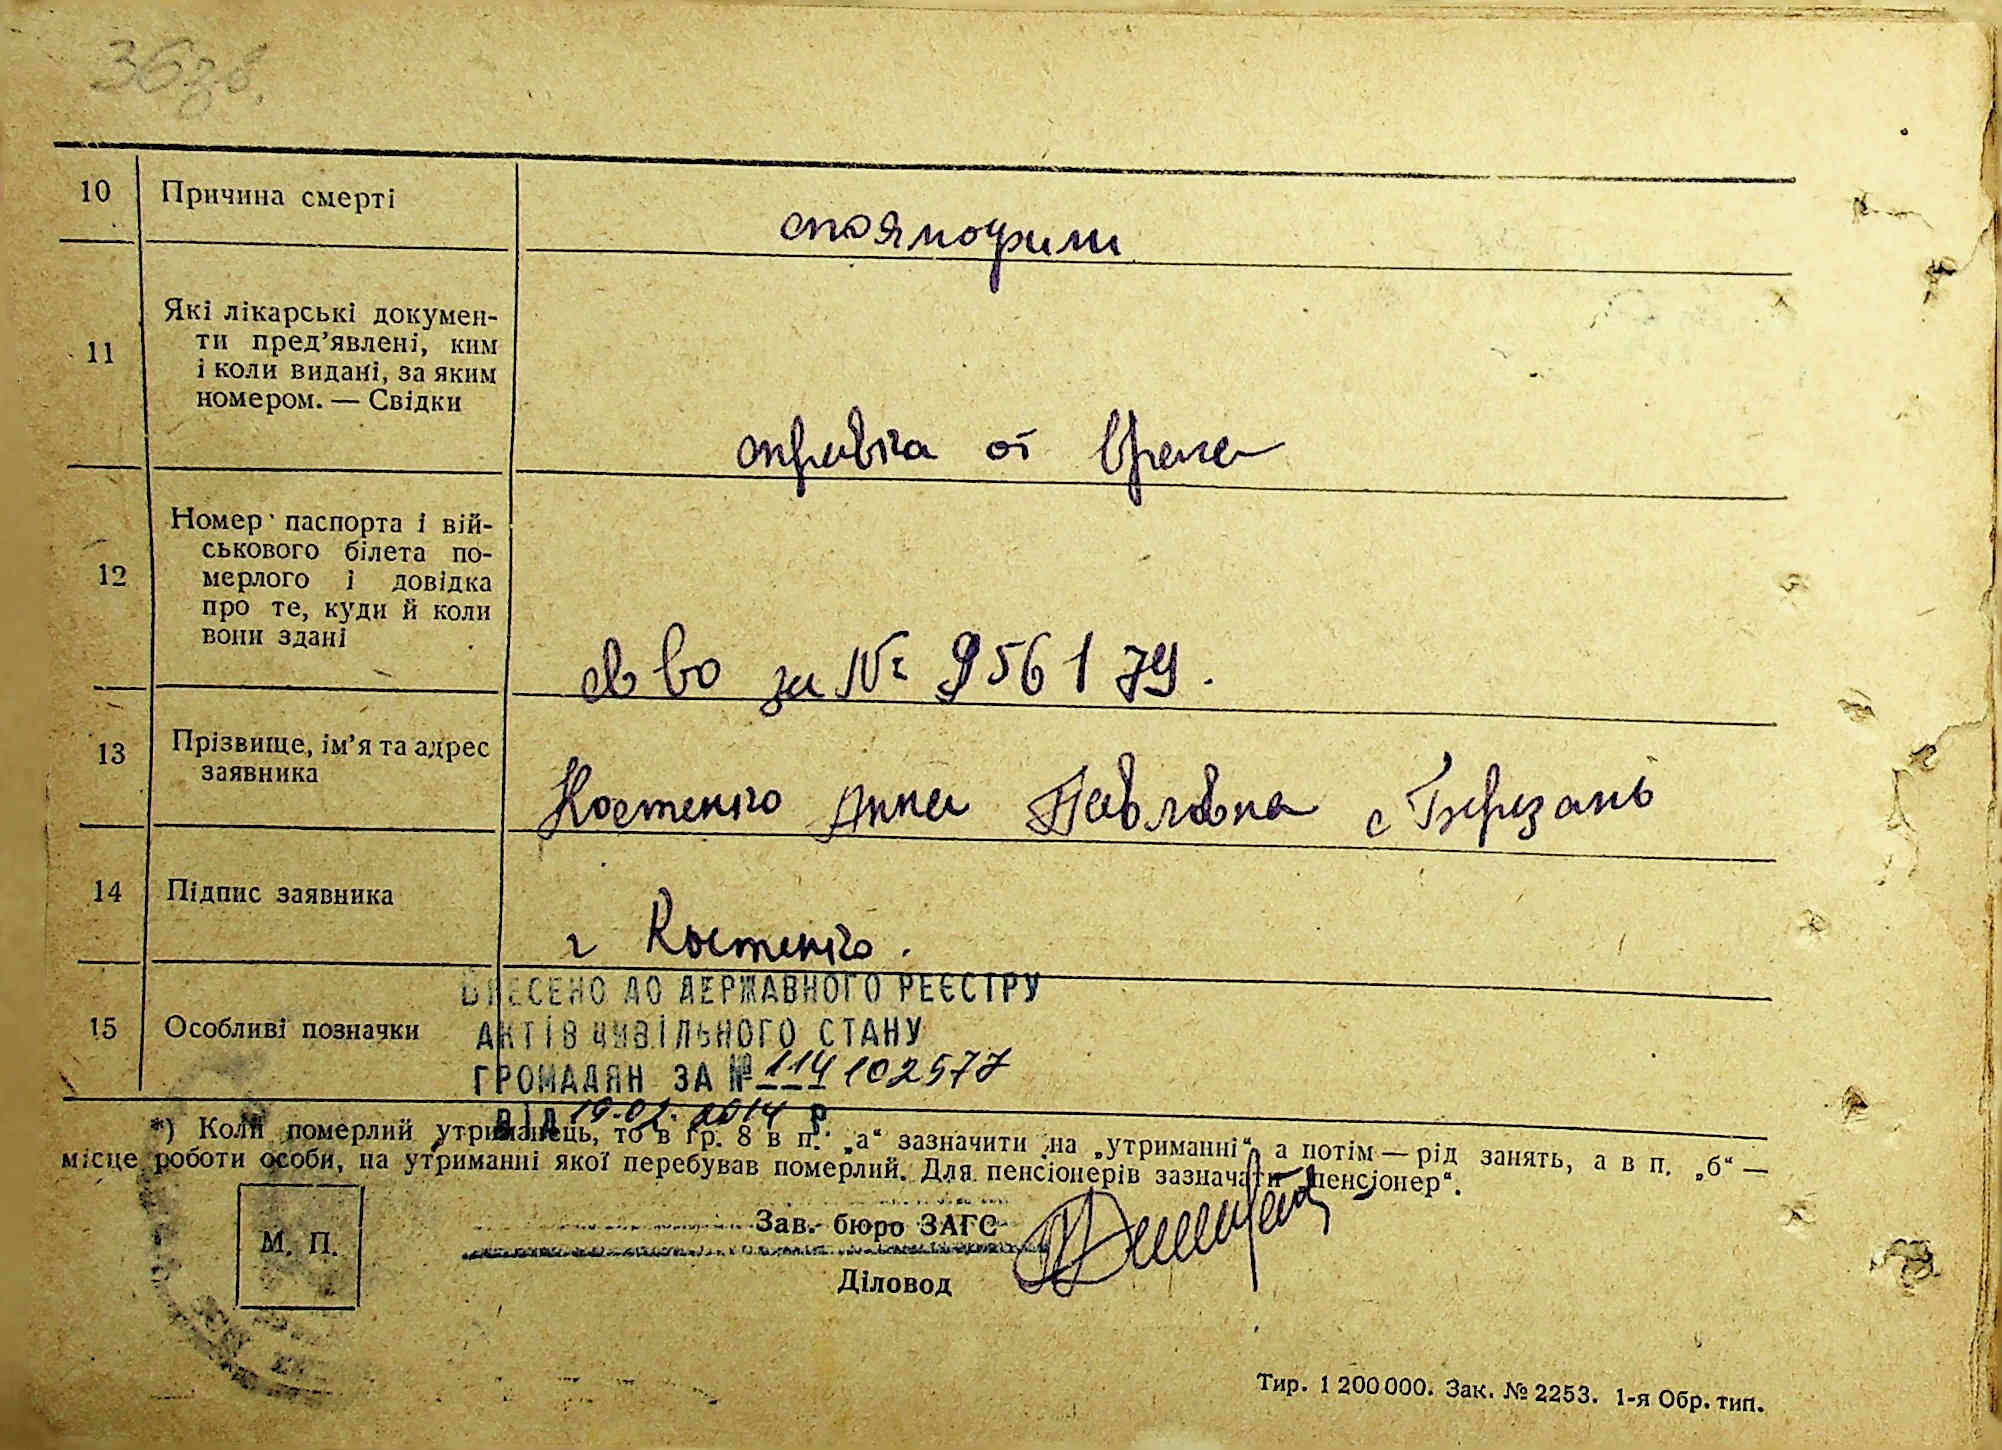 36зв.
10 Причина смерті
11 Які лікарські докумен-
ти пред’явлені, ким
і коли видані, за яким
номером. — Свідки
справка от врача
12 Номер паспорта і вій-
ськового білета по-
мерлого і довідка
про те, куди й коли
вони здані
св во за № 956179.
13 Прізвище, ім’я та адрес
заявника
Костенко Анна Павловна с Березань
14 Підпис заявника
г Костенко.
15 Особливі позначки
ВНЕСЕНО ДО ДЕРЖАВНОГО РЕЄСТРУ
АКТІВ ЦИВІЛЬНОГО СТАНУ
ГРОМАДЯН ЗА № 114 102577
ВІД 19.02.2014 Р
*) Коли померлий утриманець, то в гр. 8 в п. „а“ зазначити „на утриманні“, а потім — рід занять, а в п. „б“ —
місце роботи особи, на утриманні якої перебував померлий. Для пенсіонерів зазначати „пенсіонер“.
М. П.
Зав. бюро ЗАГС
Діловод
Тир. 1 200 000. Зак. № 2253. 1-я Обр. тип.